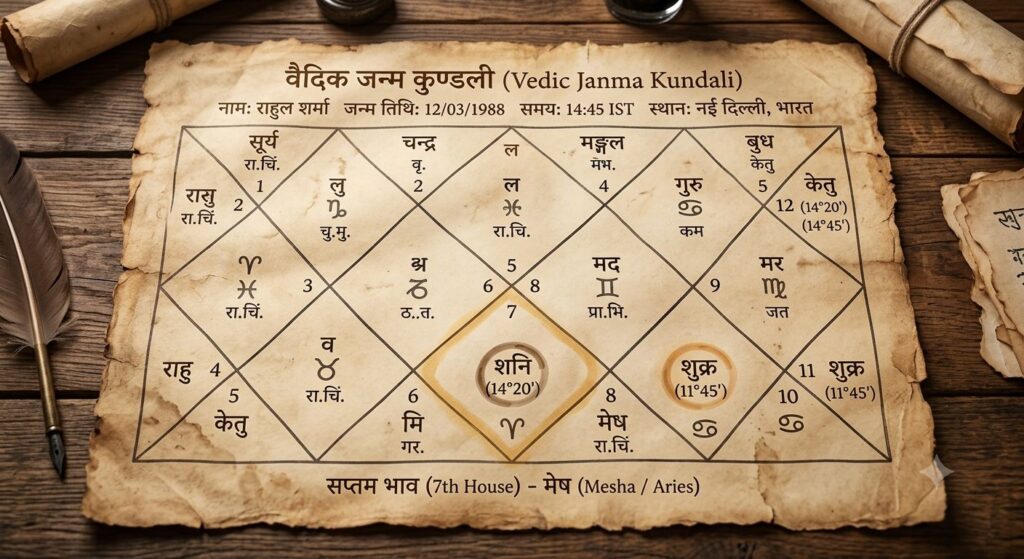 वैदिक जन्म कुण्डली (Vedic Janma Kundali)
नाम: राहुल शर्मा जन्म तिथि: 12/03/1988 समय: 14:45 IST स्थान: नई दिल्ली, भारत
सूर्य चन्द्र ल मङ्गल बुध
रा.चिं. वृ. मंभ. केतु
1 2 4 5
रासु 2 लु ल गुरु केतु
रा.चिं. ♑ ♓ ♋ 12 (14°20')
चु.मु. रा.चि. कम (14°45')
♈ 3 5 मद 9 मर
♓ 6 8 ♊ ♍
रा.चिं. ठ..त. 7 प्रा.भि. जत
राहु 4 व शनि शुक्र 11 शुक्र
♉ (14°20') (11°45') (11°45')
5 रा.चिं. 6 8 10
केतु मि ♈ मेष ♋ ♋
गर. रा.चिं.
सप्तम भाव (7th House) – मेष (Mesha / Aries)